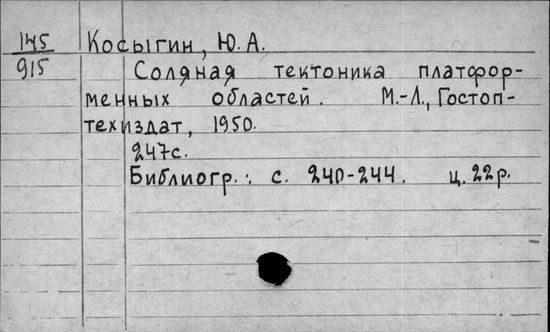 145 Косыгин, Ю. А.
915 Соляная тектоника платфор-
менных областей. М.-Л., Гостоп-
техиздат, 1950.
247с.
Библиогр.: с. 240-244. ц. 22р.